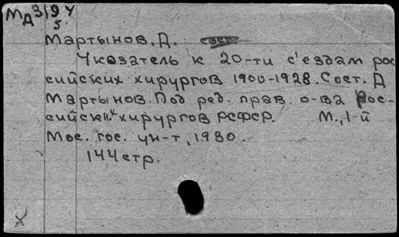 Мд 3/94
5.
Мартынов, Д.
Указатель к 20-ти с'ездам рос
сийских хирургов 1900-1928. Сост. Д
Мартынов. Под ред. прав. о-ва Рос-
сийских хирургов РСФСР. М., 1-й
Мос. гос. ун-т, 1930.
144 стр.